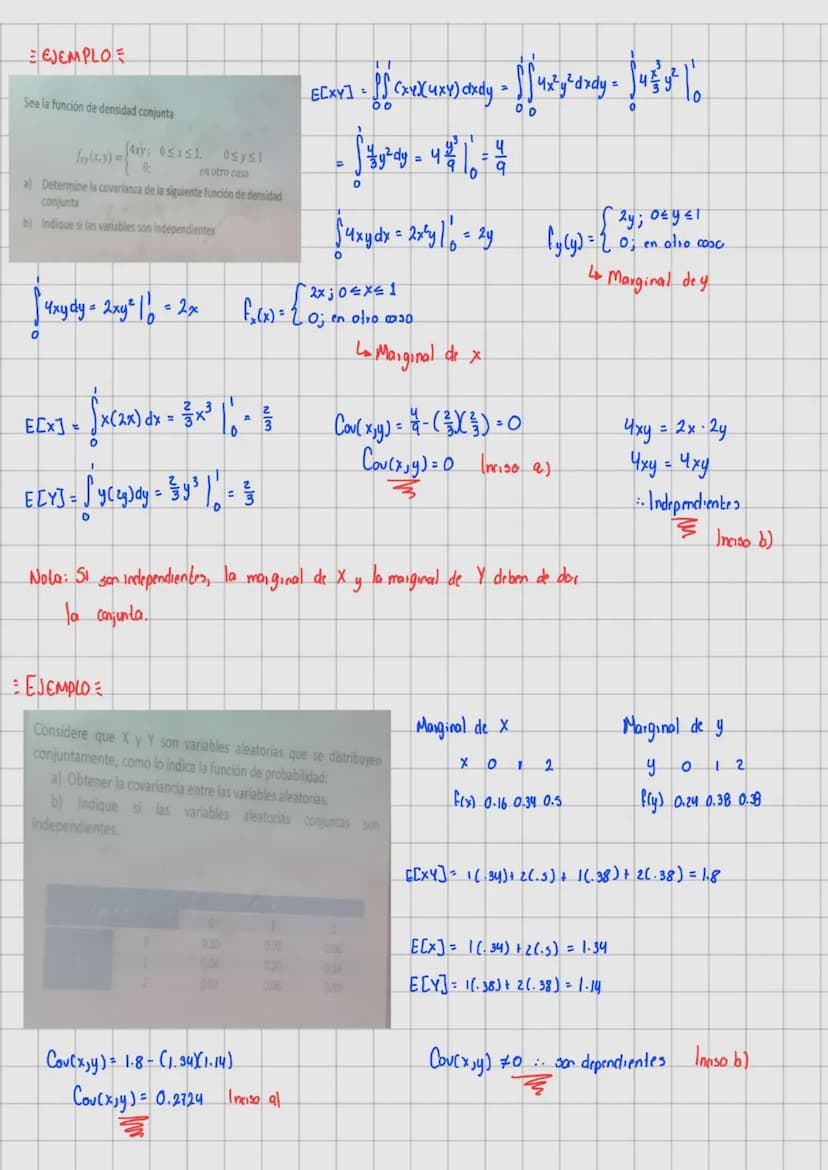 ≡ EJEMPLO ≡
Sea la función de densidad conjunta
fxy(x,y) = {4xy; 0≤x≤1, 0≤y≤1
0; en otro caso
a) Determine la covarianza de la siguiente función de densidad
conjunta
b) Indique si las variables son independientes
E[XY] = ∫₀¹∫₀¹ (xy)(4xy) dxdy = ∫₀¹∫₀¹ 4x²y² dxdy = ∫₀¹ 4 x³/3 y² |₀¹
= ∫₀¹ 4/3 y² dy = 4 y³/9 |₀¹ = 4/9
∫₀¹ 4xy dx = 2x²y |₀¹ = 2y
fy(y) = { 2y; 0≤y≤1
0; en otro caso
↳ Marginal de y
∫₀¹ 4xy dy = 2xy² |₀¹ = 2x
fx(x) = { 2x; 0≤x≤1
0; en otro caso
↳ Marginal de x
E[X] = ∫₀¹ x(2x) dx = 2/3 x³ |₀¹ = 2/3
E[Y] = ∫₀¹ y(2y) dy = 2/3 y³ |₀¹ = 2/3
Cov(x,y) = 4/9 - (2/3)(2/3) = 0
Cov(x,y) = 0 Inciso a)
4xy = 2x · 2y
4xy = 4xy
∴ Independientes
Inciso b)
Nota: Si son independientes, la marginal de X y la marginal de Y deben de dar
la conjunta.
≡ EJEMPLO ≡
Considere que X y Y son variables aleatorias que se distribuyen
conjuntamente, como lo indica la función de probabilidad:
a) Obtener la covariancia entre las variables aleatorias.
b) Indique si las variables aleatorias conjuntas son
independientes.
0 1 2
0 0.10
1 0.04 0.20
2 0.02 0.06
Marginal de X
x 0 1 2
f(x) 0.16 0.34 0.5
Marginal de y
y 0 1 2
f(y) 0.24 0.38 0.38
E[XY] = 1(.34) + 2(.5) + 1(.38) + 2(.38) = 1.8
E[X] = 1(.34) + 2(.5) = 1.34
E[Y] = 1(.38) + 2(.38) = 1.14
Cov(x,y) = 1.8 - (1.34)(1.14)
Cov(x,y) = 0.2724 Inciso a)
Cov(x,y) ≠ 0 ∴ son dependientes Inciso b)